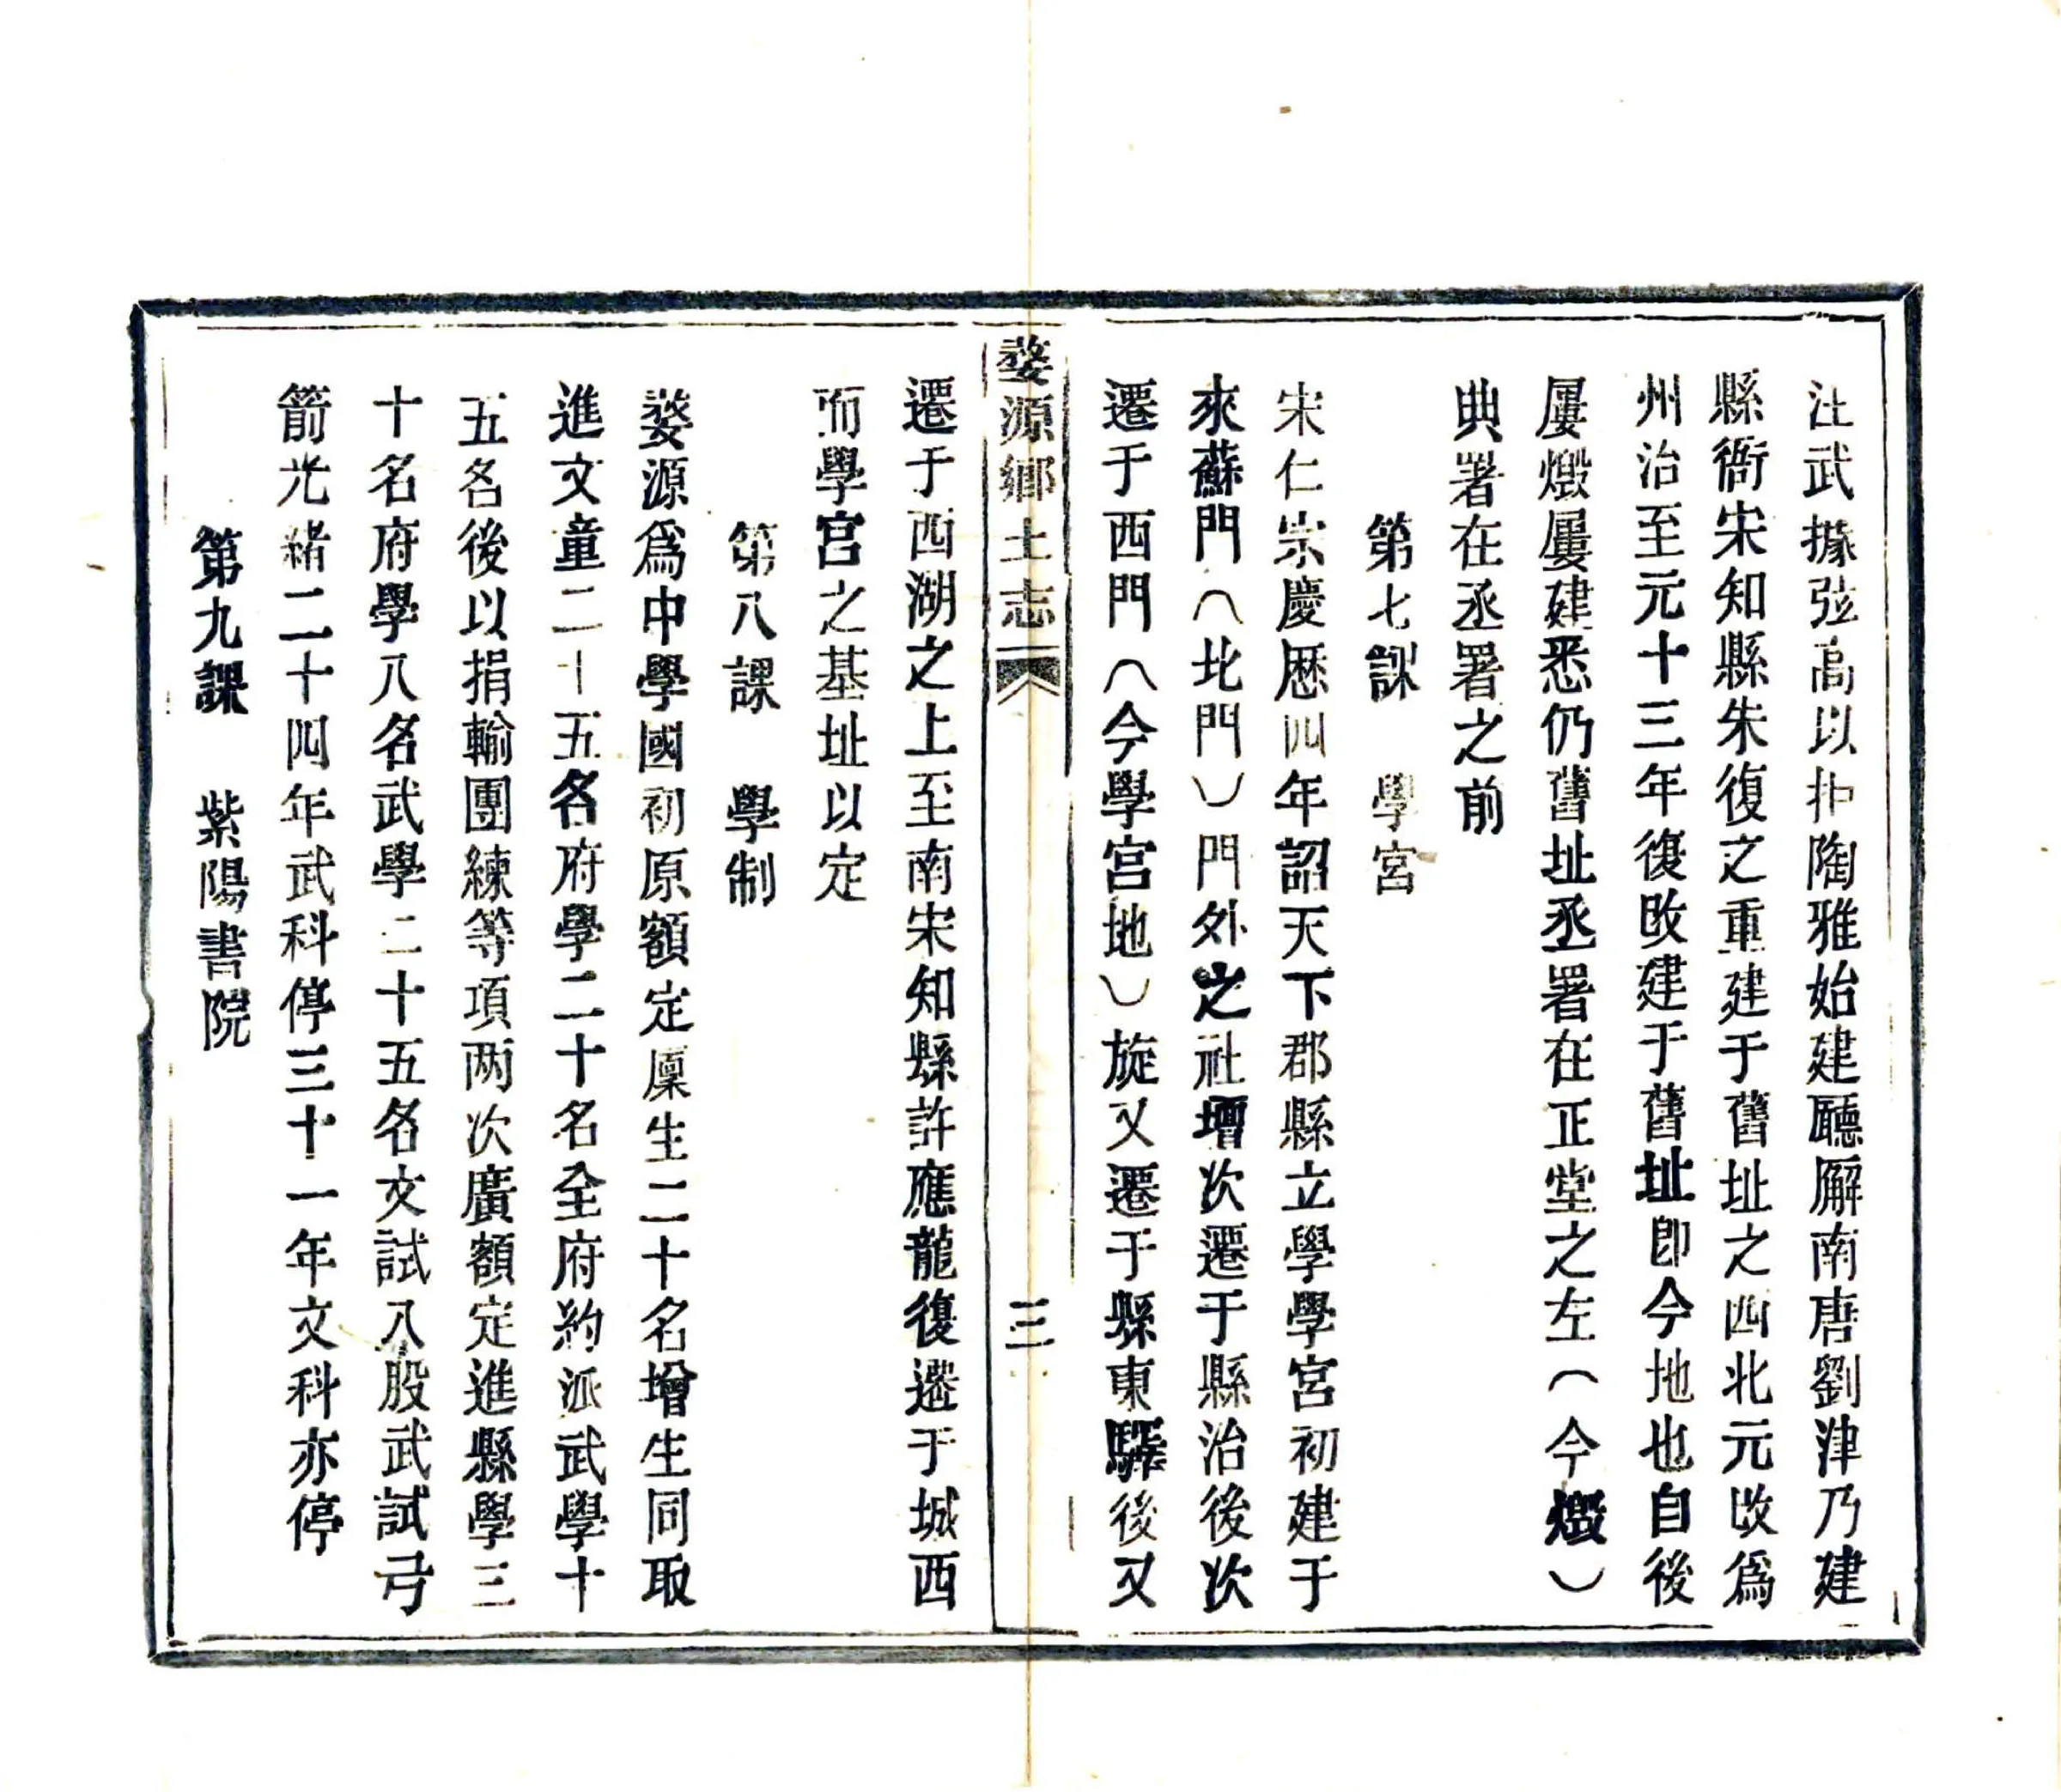 汪武據弦高以抻陶雅始建廳廨南唐劉津乃建
縣衙宋知縣朱復之重建于舊址之西北元改爲
州治至元十三年復改建于舊址卽今地也自後
屢燬屢建悉仍舊址丞署在正堂之左(今燬)
典署在丞署之前
第七課 學宮
宋仁宗慶歷四年詔天下郡縣立學學宮初建于
來蘇門(北門)門外之社壇次遷于縣治後次
遷于西門(今學宮地)旋又遷于縣東驛後又
婺源鄉土志 三
遷于西湖之上至南宋知縣許應龍復遷于城西
而學宮之基址以定
第八課 學制
婺源爲中學國初原額定廩生二十名增生同取
進文童二十五名府學二十名全府約派武學十
五名後以捐輸團練等項两次廣額定進縣學三
十名府學八名武學二十五名文試八股武試弓
箭光緒二十四年武科停三十一年文科亦停
第九課 紫陽書院